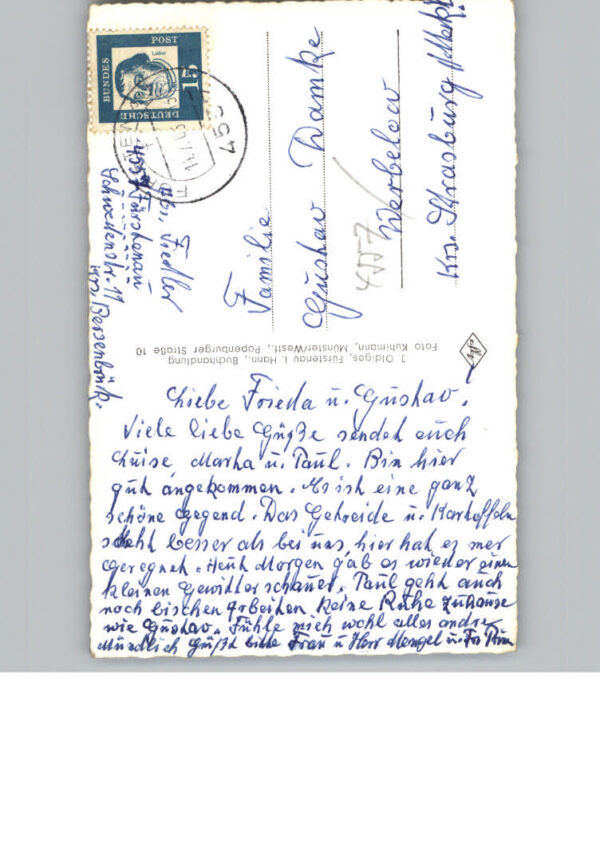 DEUTSCHE
BUNDES
POST
15
Luther
455
Abs. Fiedler
4557 Fürstenau
Schwedenstr. 11
Krs. Bersenbrück.
Familie
Gustav Damke
4557
Werbelow
Krs. Strasburg Meckl.
J. Oldiges, Fürstenau i. Hann., Buchhandlung
Foto Kuhlmann, Münster/Westf., Papenburger Straße 10
Liebe Frieda u. Gustav.
Viele liebe Grüße sendet euch
Luise, Marta u. Paul. Bin hier
gut angekommen. Es ist eine ganz
schöne Gegend. Das Getreide u. Kartoffeln
steht besser als bei uns, hier hat es mer
geregnet. Heut Morgen gab es wieder einen
kleinen Gewitterschauer. Paul geht auch
noch bischen arbeiten keine Ruhe zuhause
wie Gustav. Fühle mich wohl alles andre
Mündlich Grüßt bitte Frau u Herr Mengel u. Fr